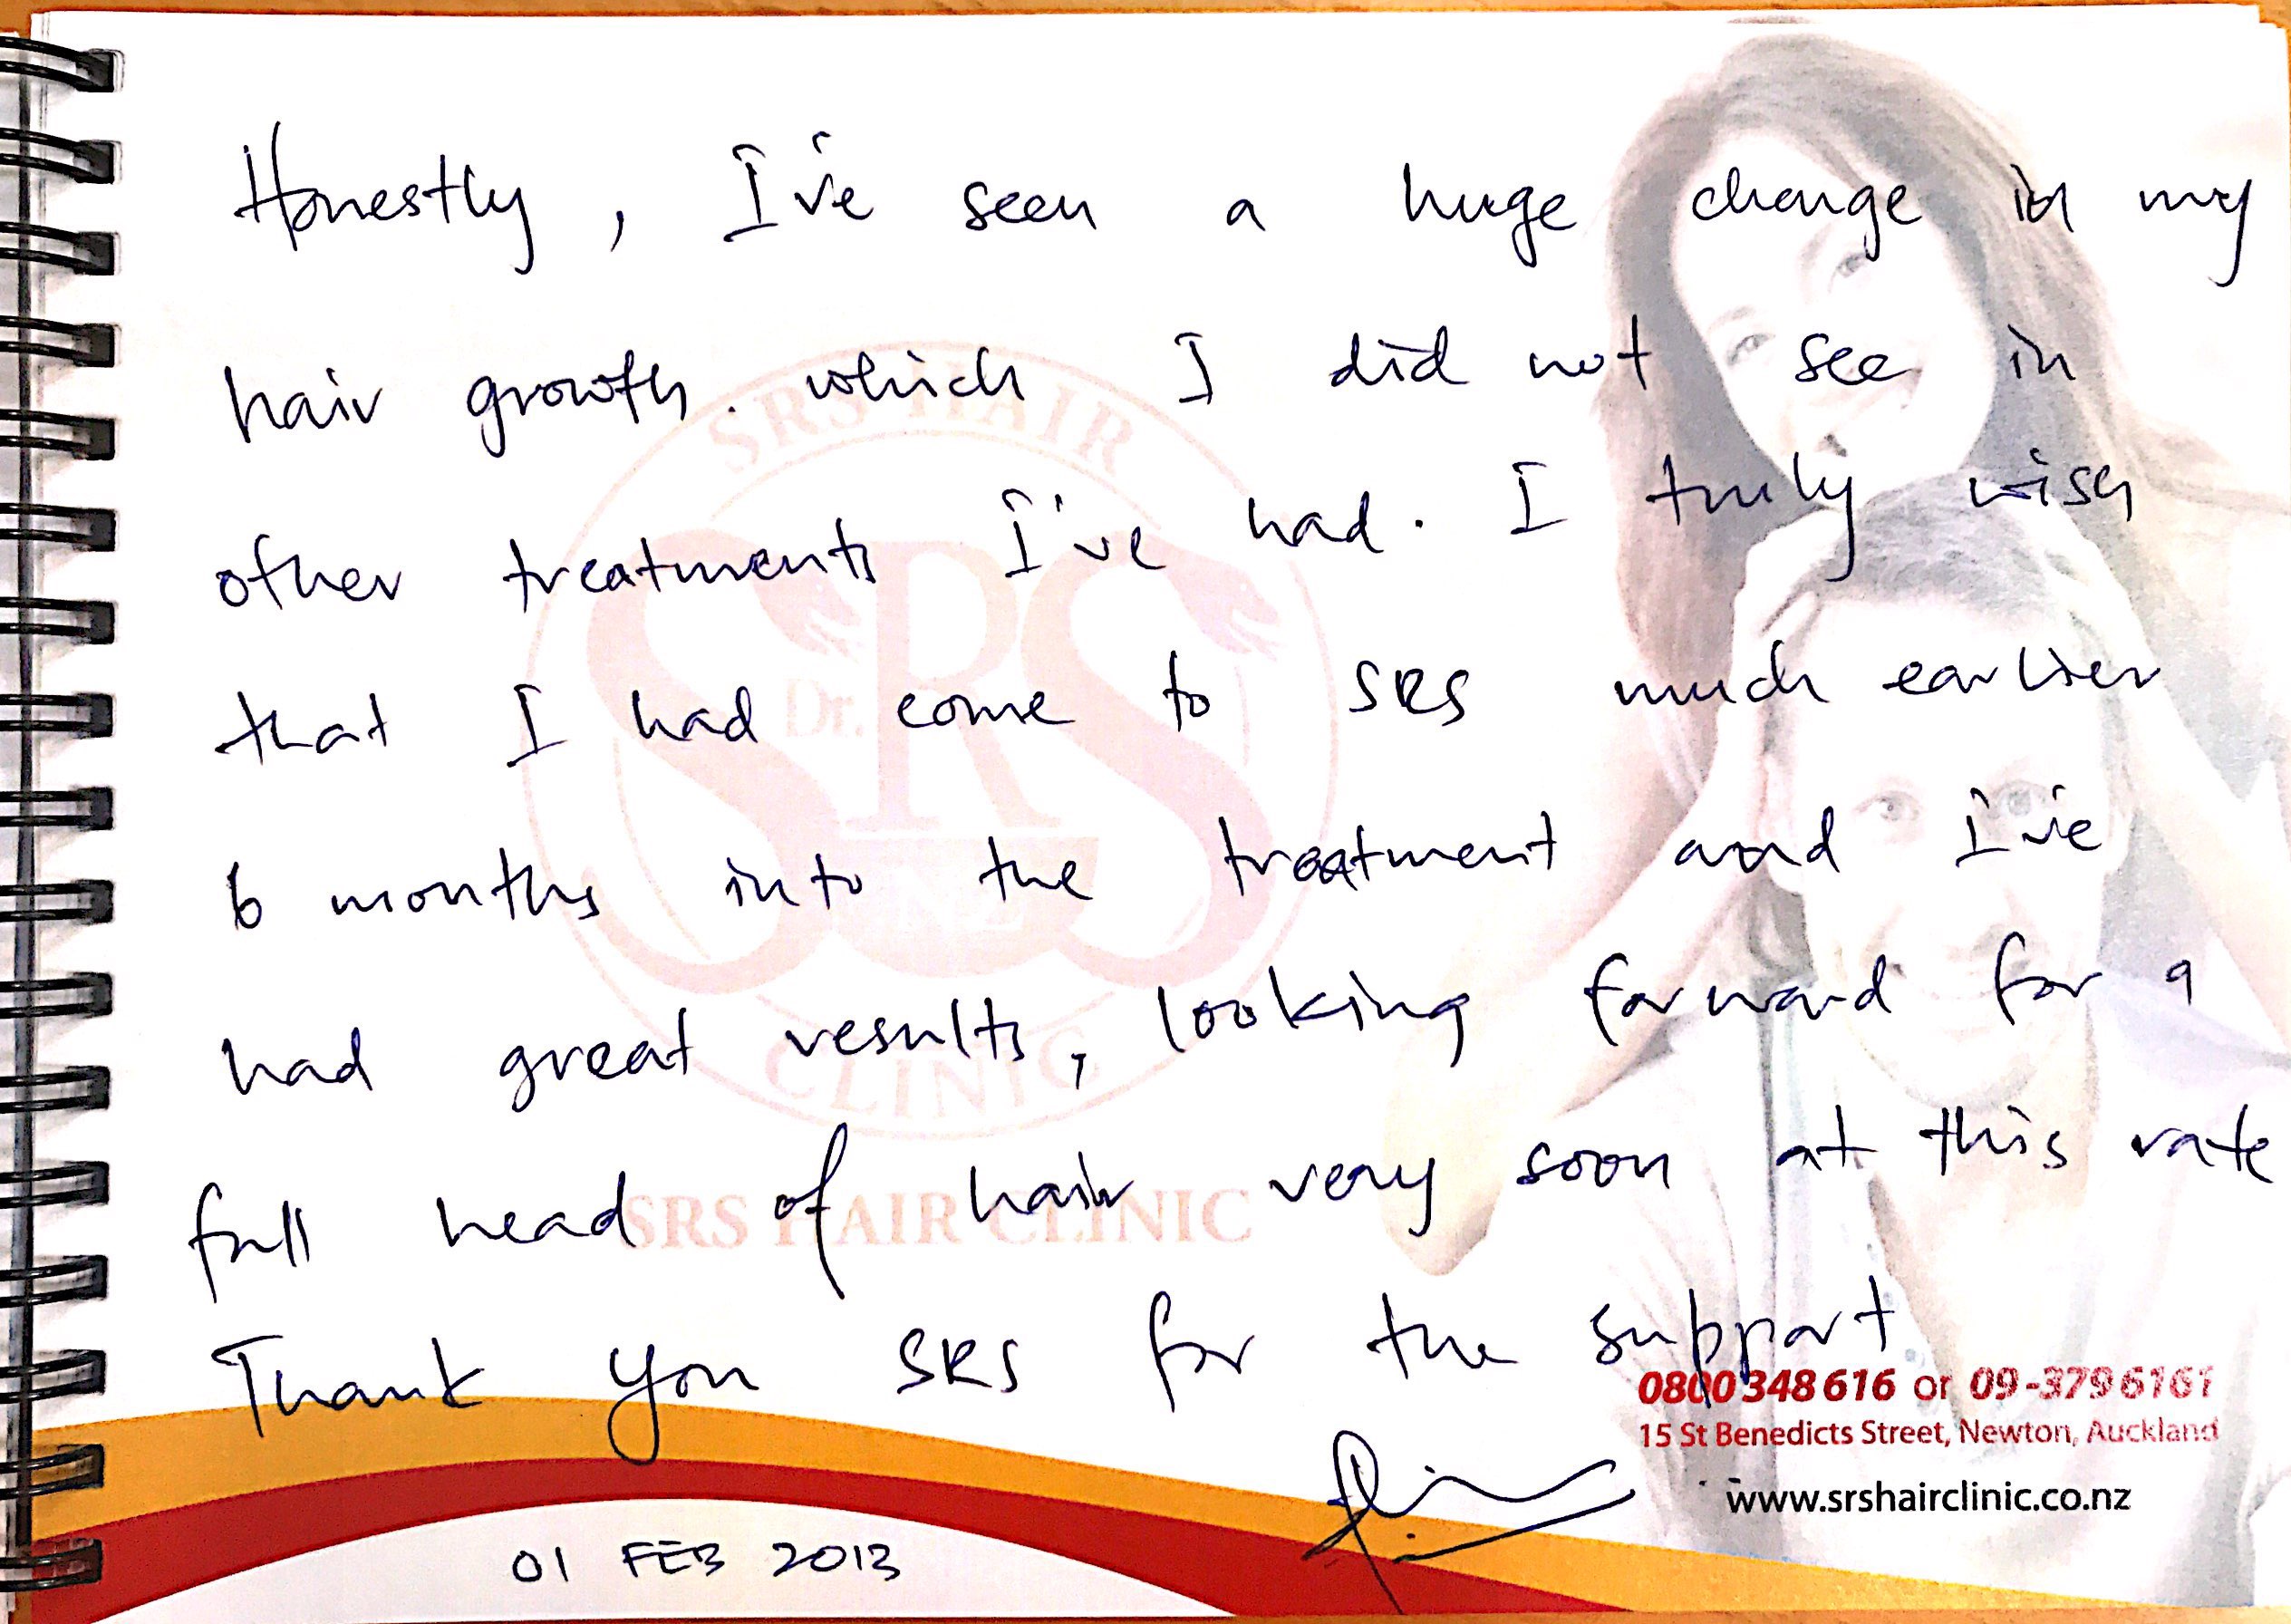 Honestly, I've seen a huge change in my
hair growth. which I did not see in
other treatments I've had. I truly wish
that I had come to SRS much earlier
6 months into the treatment and I've
had great results, looking forward for a
full head of hair very soon at this rate
Thank you SRS for the support
0800 348 616 or 09-379 6161
15 St Benedicts Street, Newton, Auckland
www.srshairclinic.co.nz
01 FEB 2013
SRS HAIR
Dr.
SRS
NZ
CLINIC
SRS HAIR CLINIC